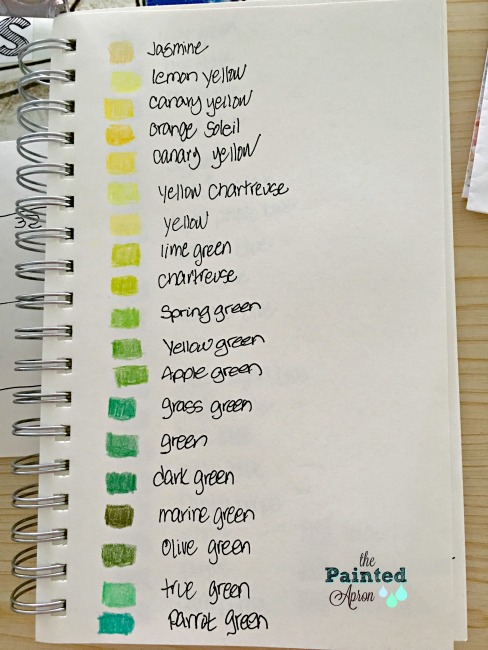 S
Jasmine
lemon yellow
canary yellow
orange soleil
canary yellow
yellow chartreuse
yellow
lime green
chartreuse
Spring green
Yellow green
Apple green
grass green
green
dark green
marine green
Olive green
true green
parrot green
the
Painted
Apron